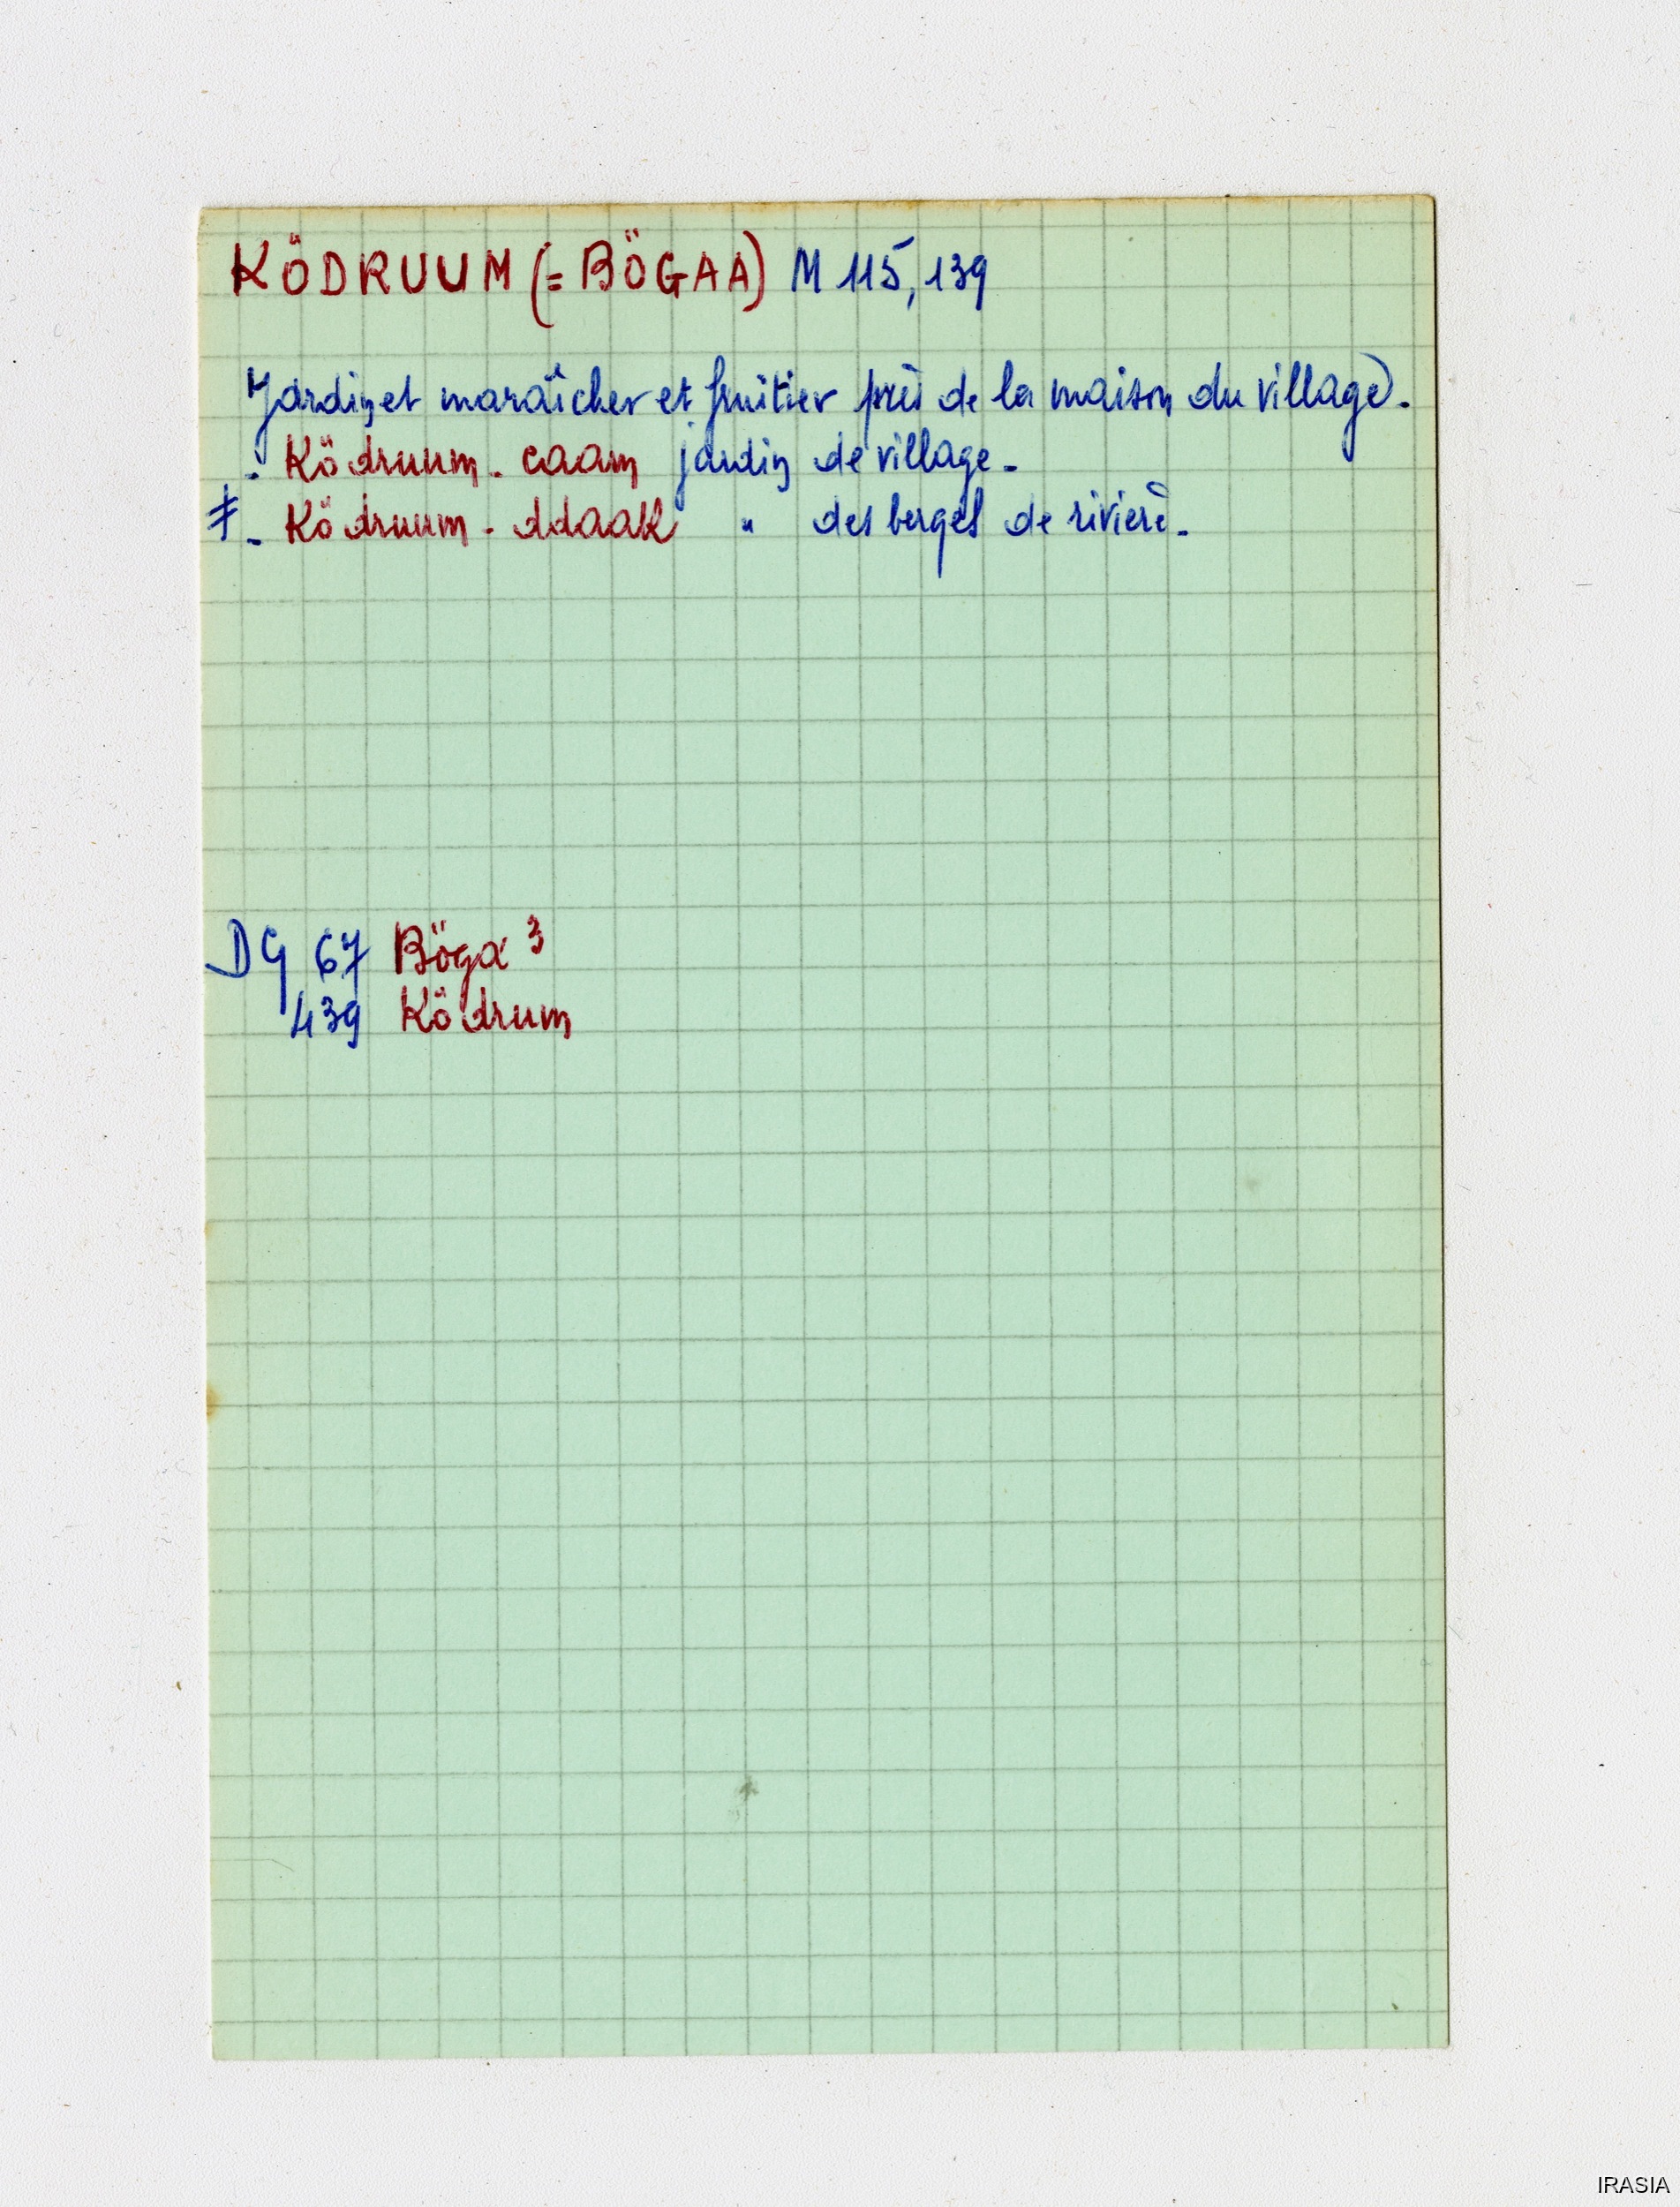 KÖDRUUM (= BÖGAA) M 115, 139
Jardinet maraîcher et fruitier près de la maison du village.
- Ködruum - caam jardin de village -
≠ - Ködruum - ddaak " des berges de rivière -
DG 67 Böga 3
439 Ködrum
IRASIA